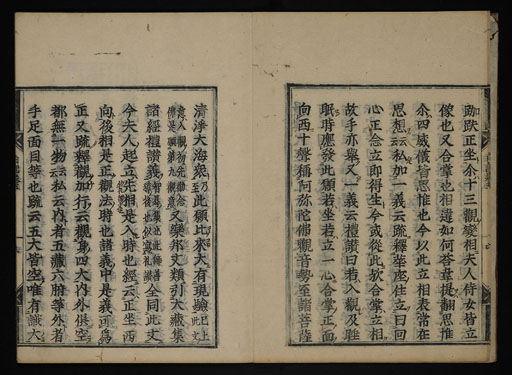 勸歟正坐余十三觀變相夫人侍女皆立
像也又合掌也相違如何答韋提翻思惟
余四威儀皆思惟也今以此立相表常在
思想云云私加一義云疏釋華座住立曰回
心正念立即得生今或從此故合掌立相
故手亦舉又一義云禮讚曰若入觀及睡
眠時應發此願若坐若立一心合掌正面
向西十聲稱阿弥陀佛觀音勢至諸菩薩
清淨大海眾乃至此願比來大有現驗已上
又樂邦文類引大藏集
諸經禮讚儀全同此文
今夫人起立先相是入時也經云正坐西
向後相是正觀法時也諸義中是義可為
正又疏釋觀加行云觀身四大内外俱空
都無一物云云私云内者五藏六腑等外者
手足面目等也疏云五大皆空唯有識大